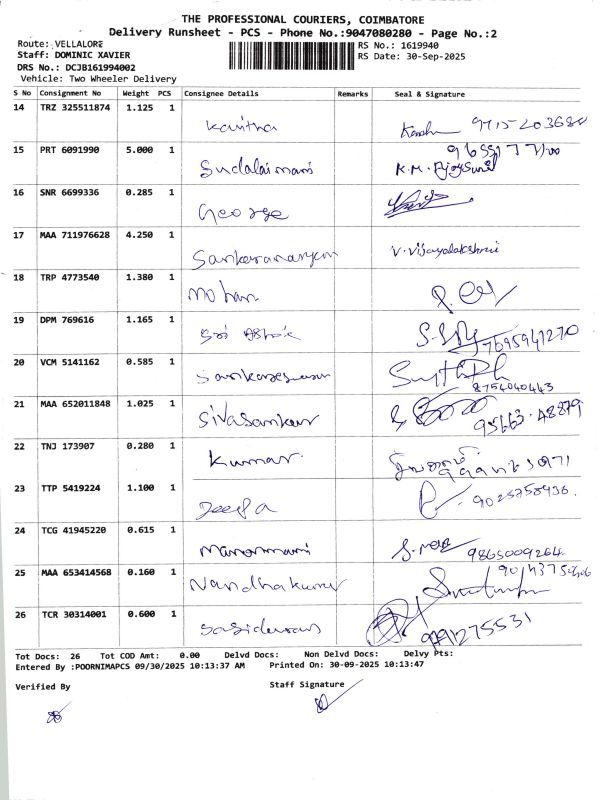 THE PROFESSIONAL COURIERS, COIMBATORE
Delivery Runsheet - PCS - Phone No.:9047080280 - Page No.:2
Route: VELLALORE
RS No.: 1619940
Staff: DOMINIC XAVIER
RS Date: 30-Sep-2025
DRS No.: DCJB161994002
Vehicle: Two Wheeler Delivery
S No Consignment No Weight PCS Consignee Details Remarks Seal & Signature
14 TRZ 325511874 1.125 1 Kavitha
15 PRT 6091990 5.000 1 Sudalaimani K.M.
16 SNR 6699336 0.285 1 George
17 MAA 711976628 4.250 1 Sankaranarayan V. Vijayalakshmi
18 TRP 4773540 1.380 1 Mohan
19 DPM 769616 1.165 1 7695941270
20 VCM 5141162 0.585 1 8754040443
21 MAA 652011848 1.025 1 Sivasankar 95663-48879
22 TNJ 173907 0.280 1 Kumar
23 TTP 5419224 1.100 1 Deepa 9025758936.
24 TCG 41945220 0.615 1 Manonmani 9865009264
25 MAA 653414568 0.160 1 Nandhakumar
26 TCR 30314001 0.600 1 Sasidevan
Tot Docs: 26 Tot COD Amt: 0.00 Delvd Docs: Non Delvd Docs: Delvy Pts:
Entered By :POORNIMAPCS 09/30/2025 10:13:37 AM Printed On: 30-09-2025 10:13:47
Verified By
Staff Signature